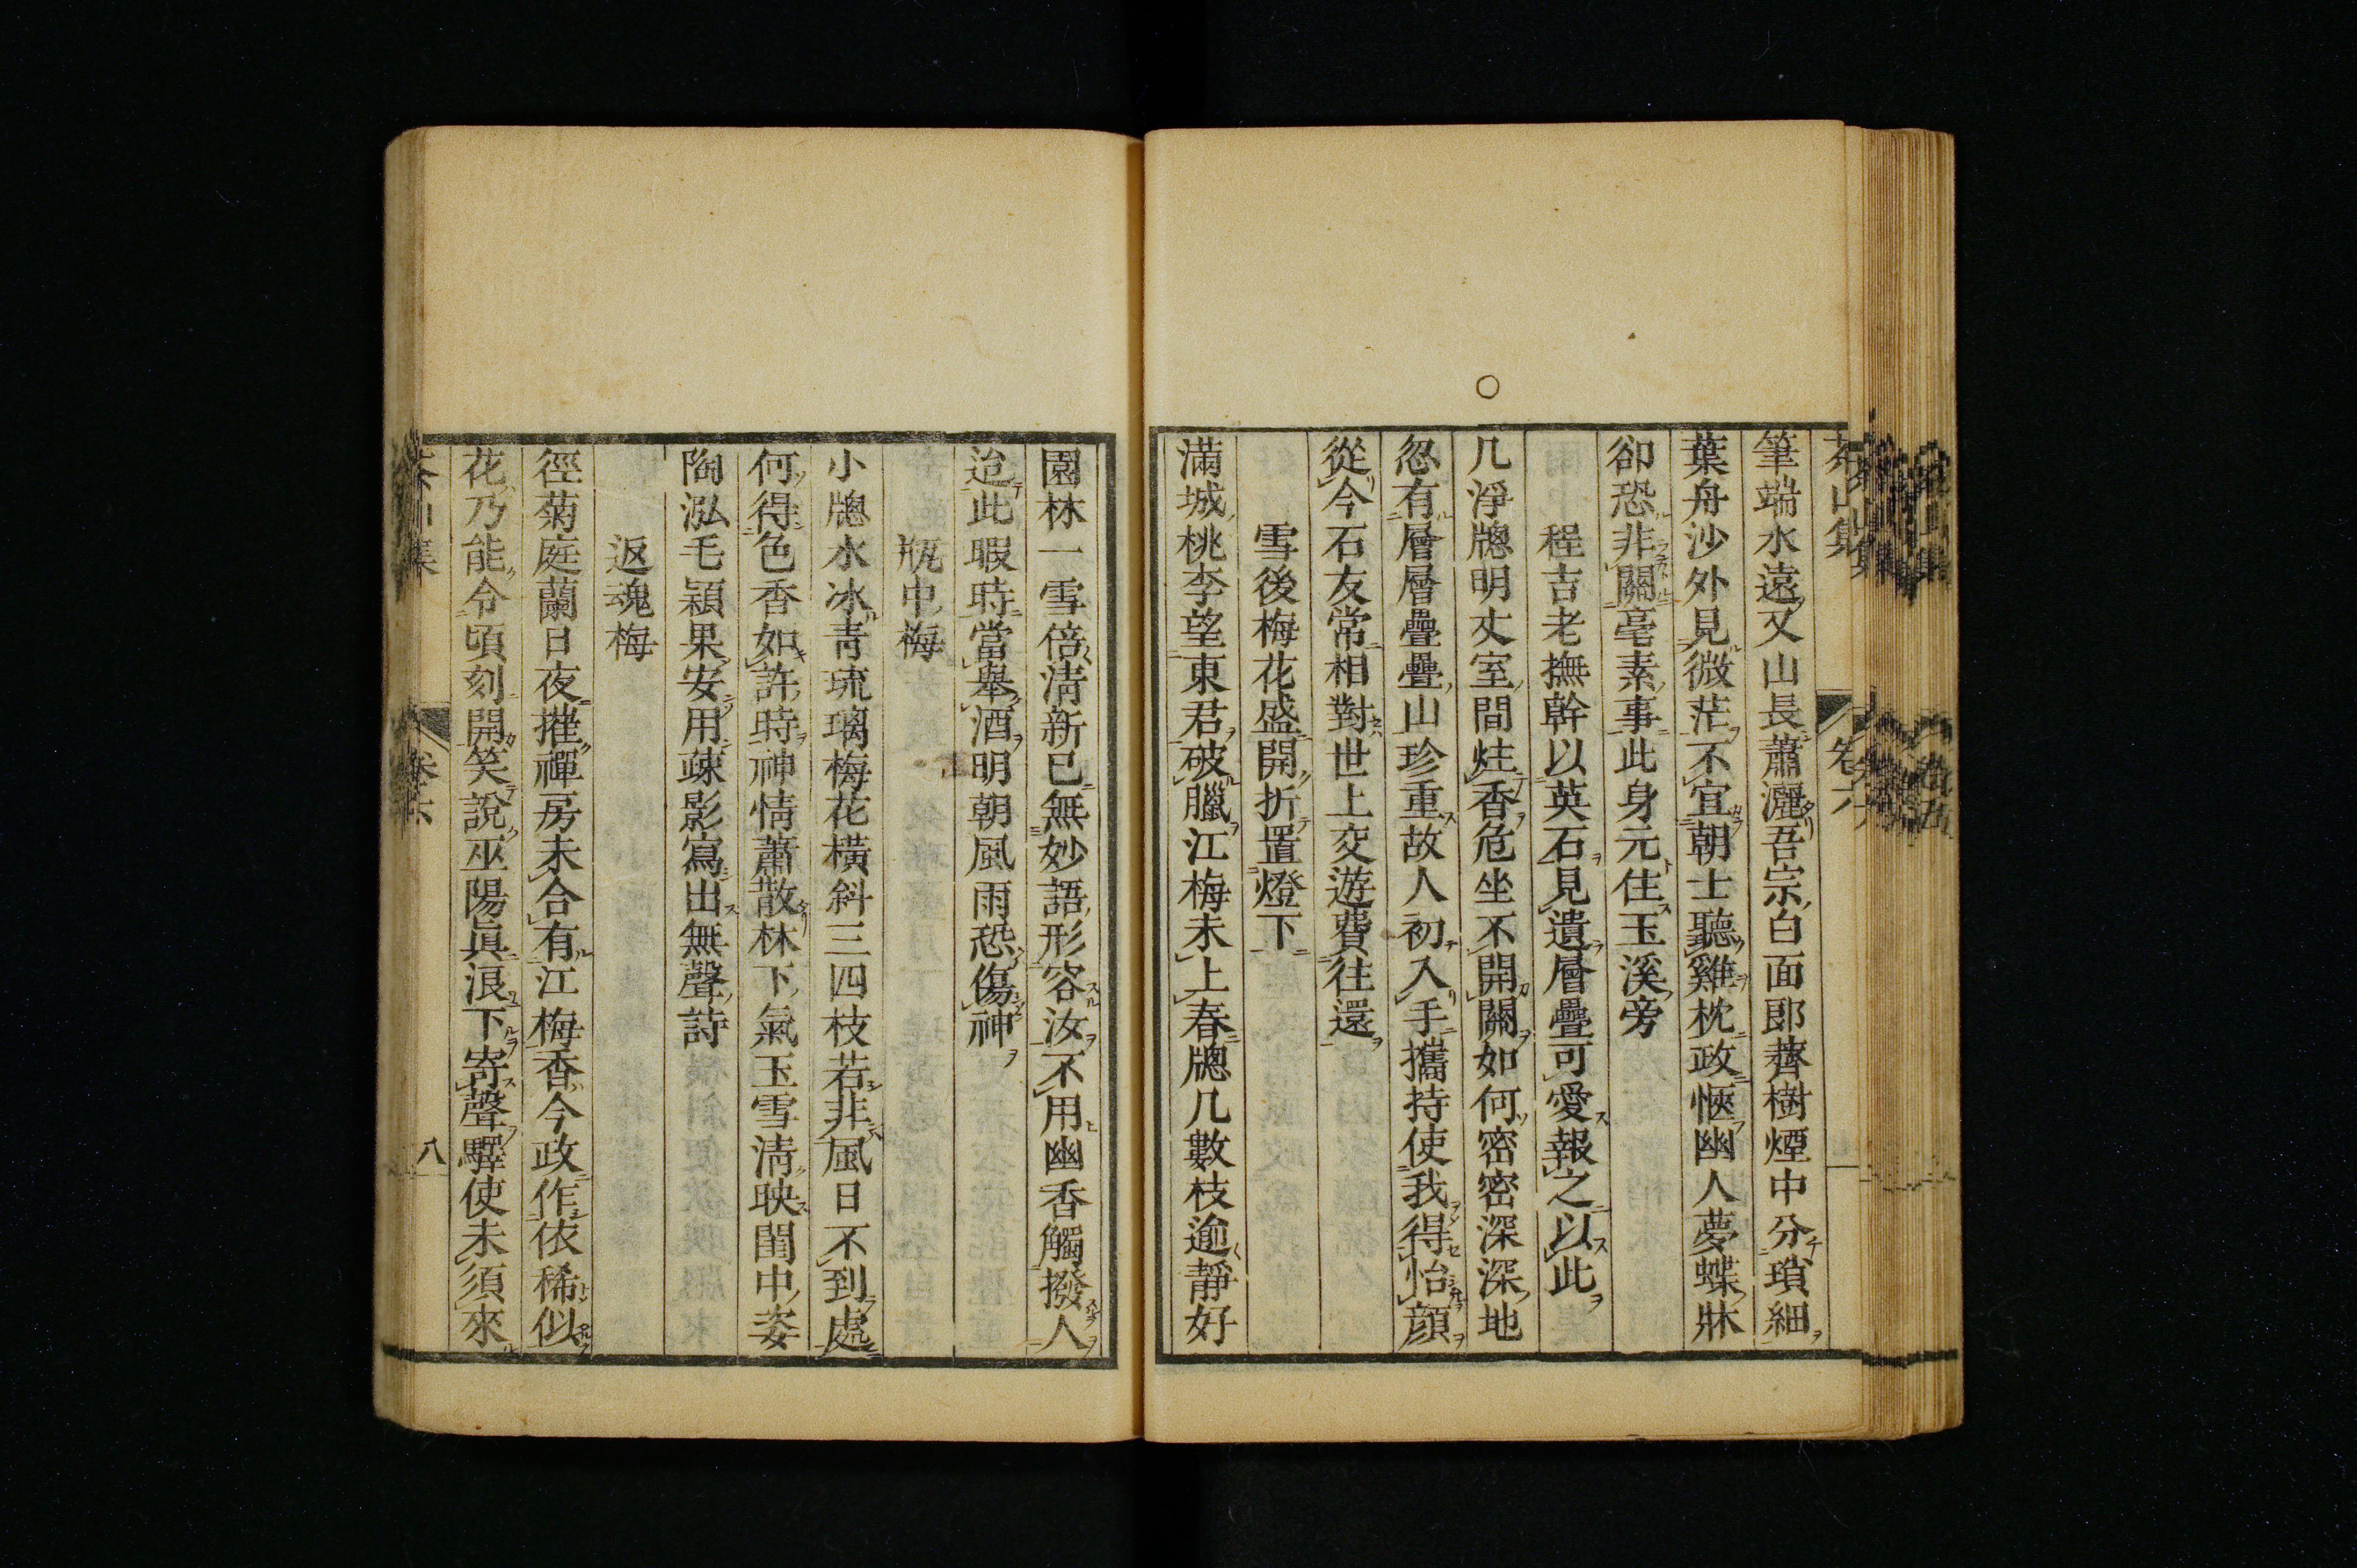 茶山集 卷六
筆端水遠又山長蕭灑吾宗白面郎薺樹煙中分瑣細
葉舟沙外見微茫不宜朝士聽雞枕政愜幽人夢蝶牀
卻恐非關毫素事此身元住玉溪旁
程吉老撫幹以英石見遺層疊可愛報之以此
几淨牕明丈室間炷香危坐不開關如何密密深深地
忽有層層疊疊山珍重故人初入手攜持使我得怡顔
從今石友常相對世上交遊費往還
雪後梅花盛開折置燈下
滿城桃李望東君破臘江梅未上春牕几數枝逾靜好
園林一雪倍淸新已無妙語形容汝不用幽香觸撥人
迨此暇時當舉酒明朝風雨恐傷神
瓶中梅
小牕水冰靑琉璃梅花橫斜三四枝若非風日不到處
何得色香如許時神情蕭散林下氣玉雪淸映閨中姿
陶泓毛穎果安用疎影寫出無聲詩
返魂梅
徑菊庭蘭日夜摧禪房未合有江梅香今政作依稀似
花乃能令頃刻開笑說巫陽眞浪下寄聲驛使未須來
茶山集 卷六 八